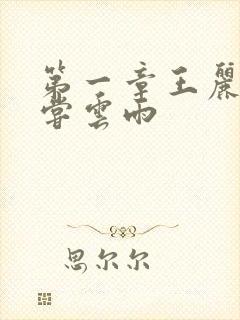 第一章王麗
嘗雲雨
思尔尔